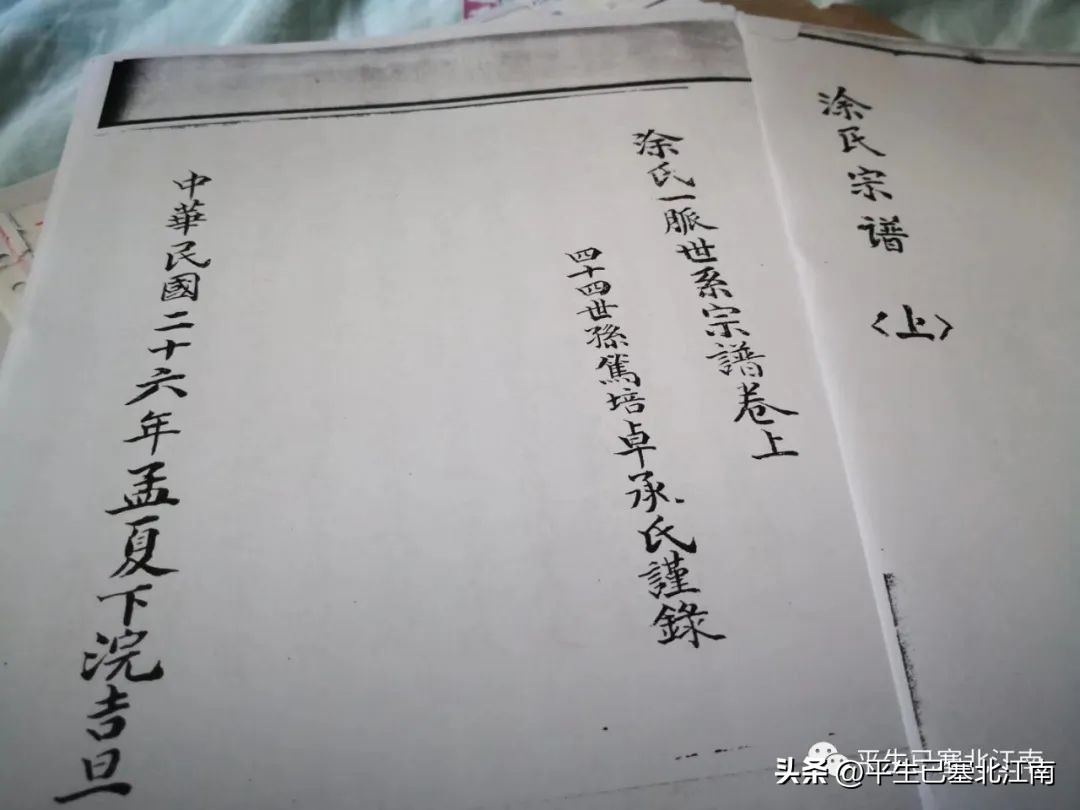 涂氏宗譜
〈上〉
涂氏一脈世系宗譜卷上
四十四世孫篤培卓承氏謹錄
中華民國二十六年孟夏下浣吉旦
平生已塞北江南
头条 @平生已塞北江南